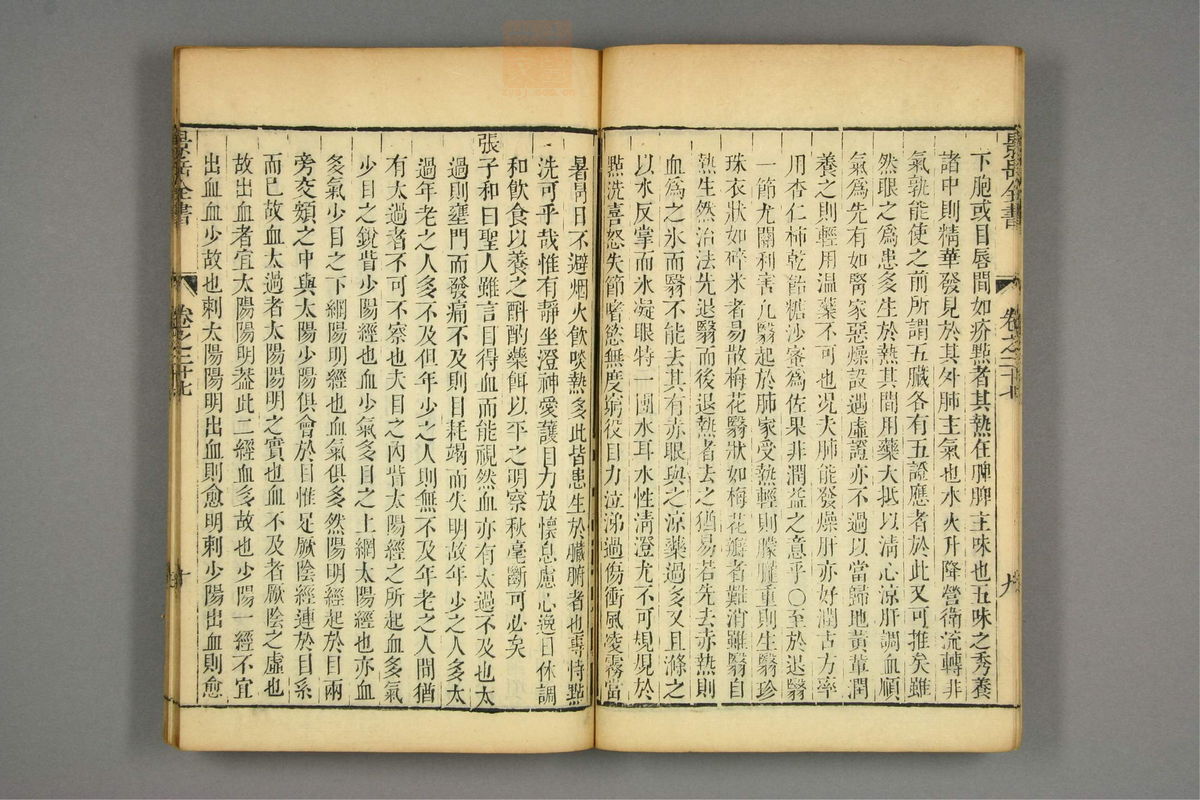 景岳全書
卷之二十七
九
下胞或目唇間如疥點者其熱在脾脾主味也五味之秀養
諸中則精華發見於其外肺主氣也水火升降營衛流轉非
氣孰能使之前所謂五臟各有五證應者於此又可推矣雖
然眼之爲患多生於熱其間用藥大抵以清心涼肝調血順
氣爲先有如腎家惡燥設遇虛證亦不過以當歸地黃輩潤
養之則輕用温藥不可也况夫肺能發燥肝亦好潤古方率
用杏仁柿乾飴糖沙蜜爲佐果非潤益之意乎○至於退翳
一節尤關利害凡翳起於肺家受熱輕則朦朧重則生翳珍
珠衣狀如碎米者易散梅花翳狀如梅花瓣者難消雖翳自
熱生然治法先退翳而後退熱者去之猶易若先去赤熱則
血爲之氷而翳不能去其有赤眼與之涼藥過多又且滌之
以水反掌而水凝眼特一團水耳水性清澄尤不可規規於
點洗喜怒失節嗜慾無度窮役目力泣涕過傷衝風凌霧當
暑冐日不避烟火飲啖熱多此皆患生於臟腑者也專恃點
洗可乎哉惟有靜坐澄神愛護目力放懷息慮心逸目休調
和飲食以養之斟酌藥餌以平之明察秋毫斷可必矣
張子和曰聖人雖言目得血而能視然血亦有太過不及也太
過則壅門而發痛不及則目耗竭而失明故年少之人多太
過年老之人多不及但年少之人則無不及年老之人間猶
有太過者不可不察也夫目之內眥太陽經之所起血多氣
少目之銳眥少陽經也血少氣多目之上網太陽經也亦血
多氣少目之下網陽明經也血氣俱多然陽明經起於目兩
旁交頞之中與太陽少陽俱會於目惟足厥陰經連於目系
而已故血太過者太陽陽明之實也血不及者厥陰之虛也
故出血者宜太陽陽明葢此二經血多故也少陽一經不宜
出血血少故也刺太陽陽明出血則愈明刺少陽出血則愈
景岳全書
卷之二十七
十